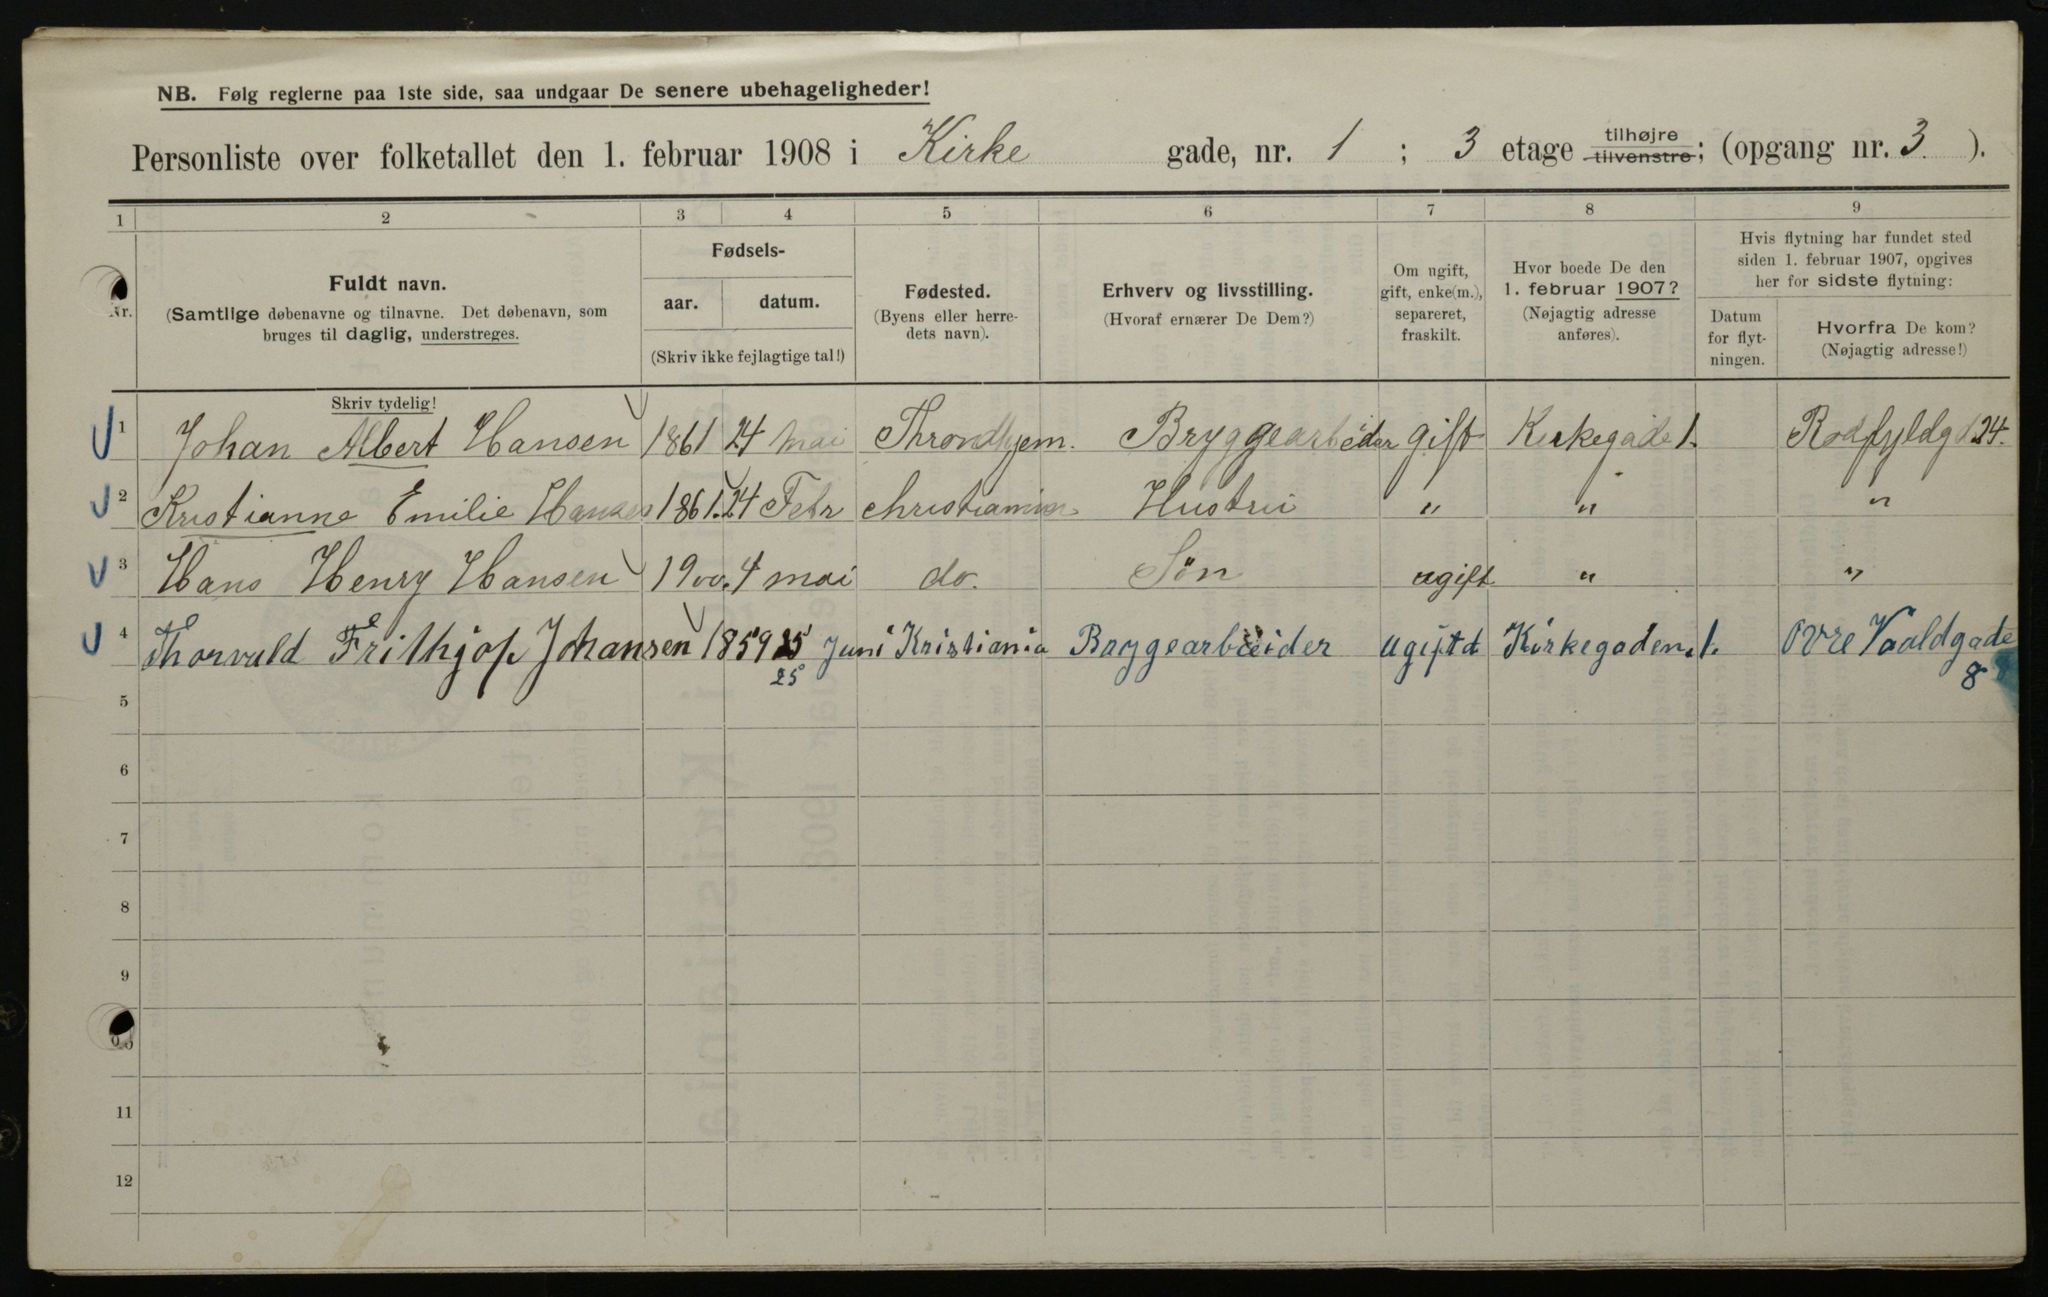 NB. Følg reglerne paa 1ste side, saa undgaar De senere ubehageligheder!
Personliste over folketallet den 1. februar 1908 i Kirke gade, nr. 1 ; 3 etage tilhøjre tilvenstre; (opgang nr. 3. ).
1 2 3 4 5 6 7 8 9
Nr.
Fuldt navn.
(Samtlige døbenavne og tilnavne. Det døbenavn, som
bruges til daglig, understreges.
Skriv tydelig!
Fødsels-
aar. datum.
(Skriv ikke fejlagtige tal!)
Fødested.
(Byens eller herre-
dets navn).
Erhverv og livsstilling.
(Hvoraf ernærer De Dem?)
Om ugift,
gift, enke(m.),
separeret,
fraskilt.
Hvor boede De den
1. februar 1907?
(Nøjagtig adresse
anføres).
Hvis flytning har fundet sted
siden 1. februar 1907, opgives
her for sidste flytning:
Datum
for flyt-
ningen.
Hvorfra De kom?
(Nøjagtig adresse!)
1 Johan Albert Hansen 1861 24 mai Throndhjem. Bryggearbeider gift Kirkegade 1. 24.
2 Kristianne Emilie Hansen 1861. 24 Febr Christiania Hustru " " "
3 Hans Henry Hansen 1900. 4 mai do. Søn ugift " "
4 Thorvald Frithjof Johansen 1859 25 Juni Kristiania Baryggearbeider ugift Kirkegaden. 1. Ovre Vaaldgade
25 8
5
6
7
8
9
10
11
12